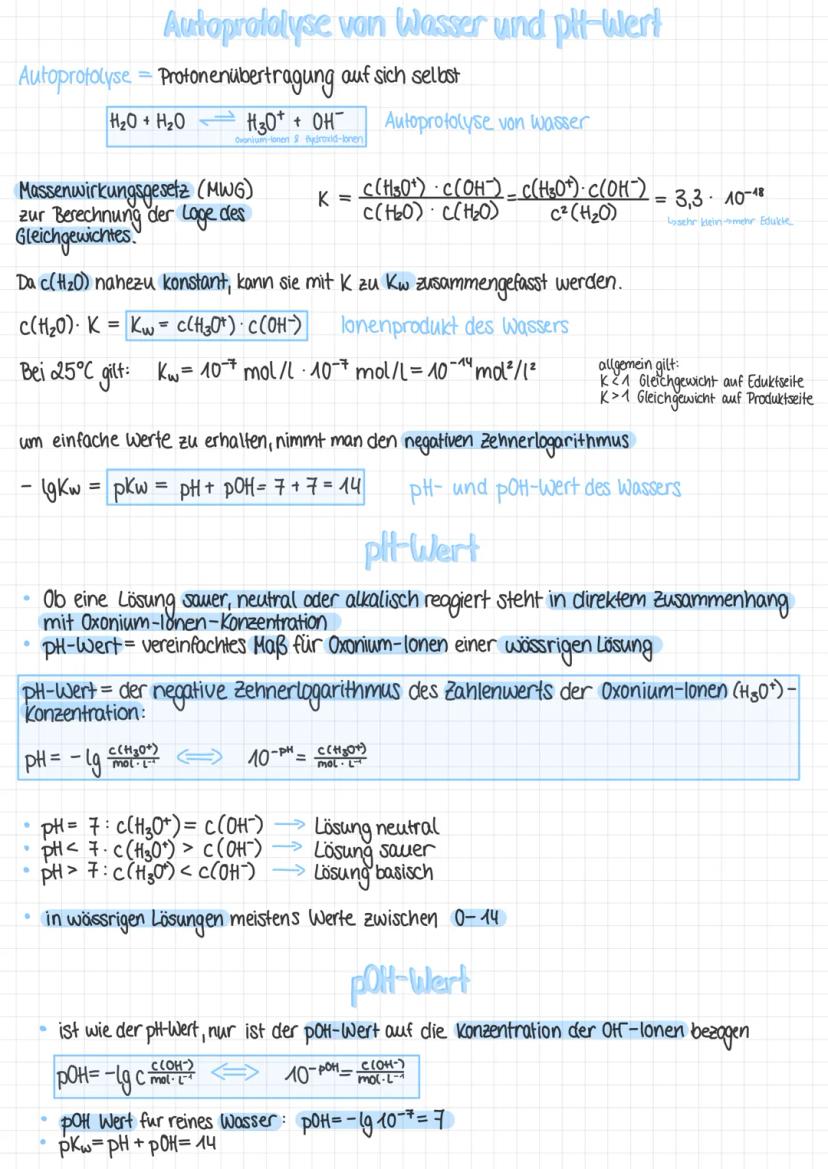 Autoprotolyse von Wasser und pH-Wert
Autoprotolyse = Protonenübertragung auf sich selbst
H₂O + H₂O ⇌ H₃O⁺ + OH⁻ Autoprotolyse von Wasser
Oxonium-Ionen & Hydroxid-Ionen
Massenwirkungsgesetz (MWG)
zur Berechnung der Lage des
Gleichgewichtes.
K = c(H₃O⁺) · c(OH⁻) / c(H₂O) · c(H₂O) = c(H₃O⁺) · c(OH⁻) / c²(H₂O) = 3,3 · 10⁻¹⁸
↳ sehr klein → mehr Edukte
Da c(H₂O) nahezu konstant, kann sie mit K zu Kw zusammengefasst werden.
c(H₂O) · K = Kw = c(H₃O⁺) · c(OH⁻) Ionenprodukt des Wassers
Bei 25°C gilt: Kw = 10⁻⁷ mol/l · 10⁻⁷ mol/l = 10⁻¹⁴ mol²/l²
allgemein gilt:
K < 1 Gleichgewicht auf Eduktseite
K > 1 Gleichgewicht auf Produktseite
um einfache Werte zu erhalten, nimmt man den negativen Zehnerlogarithmus
- lgKw = pKw = pH + pOH = 7 + 7 = 14 pH- und pOH-Wert des Wassers
pH-Wert
• Ob eine Lösung sauer, neutral oder alkalisch reagiert steht in direktem Zusammenhang
mit Oxonium-Ionen-Konzentration
• pH-Wert = vereinfachtes Maß für Oxonium-Ionen einer wässrigen Lösung
pH-Wert = der negative Zehnerlogarithmus des Zahlenwerts der Oxonium-Ionen (H₃O⁺) -
Konzentration:
pH = - lg c(H₃O⁺) / mol · L⁻¹ ⟺ 10⁻ᵖᴴ = c(H₃O⁺) / mol · L⁻¹
• pH = 7 : c(H₃O⁺) = c(OH⁻) → Lösung neutral
• pH < 7 · c(H₃O⁺) > c(OH⁻) → Lösung sauer
• pH > 7 : c(H₃O⁺) < c(OH⁻) → Lösung basisch
• in wässrigen Lösungen meistens Werte zwischen 0 - 14
pOH-Wert
• ist wie der pH-Wert, nur ist der pOH-Wert auf die Konzentration der OH⁻-Ionen bezogen
pOH = -lg c c(OH⁻) / mol · L⁻¹ ⟺ 10⁻ᵖᴼᴴ = c(OH⁻) / mol · L⁻¹
• pOH Wert fur reines Wasser : pOH = - lg 10⁻⁷ = 7
• pKw = pH + pOH = 14